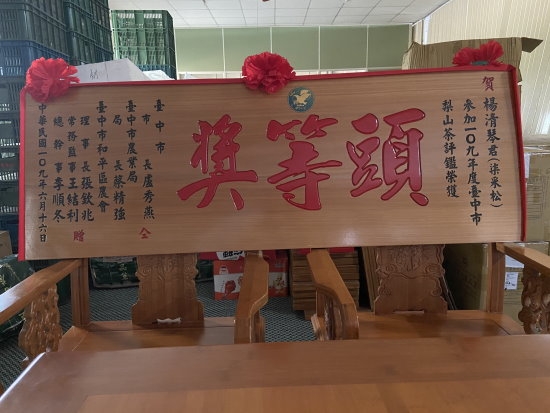 賀
楊清琴君(梁采松)
參加一0九年度臺中市
梨山茶評鑑榮獲
頭等獎
臺中市
市長盧秀燕
臺中市農業局
局長蔡精強
臺中市和平區農會
理事長張欽兆
常務監事王結利
總幹事李順冬
仝贈
中華民國一0九年六月十六日